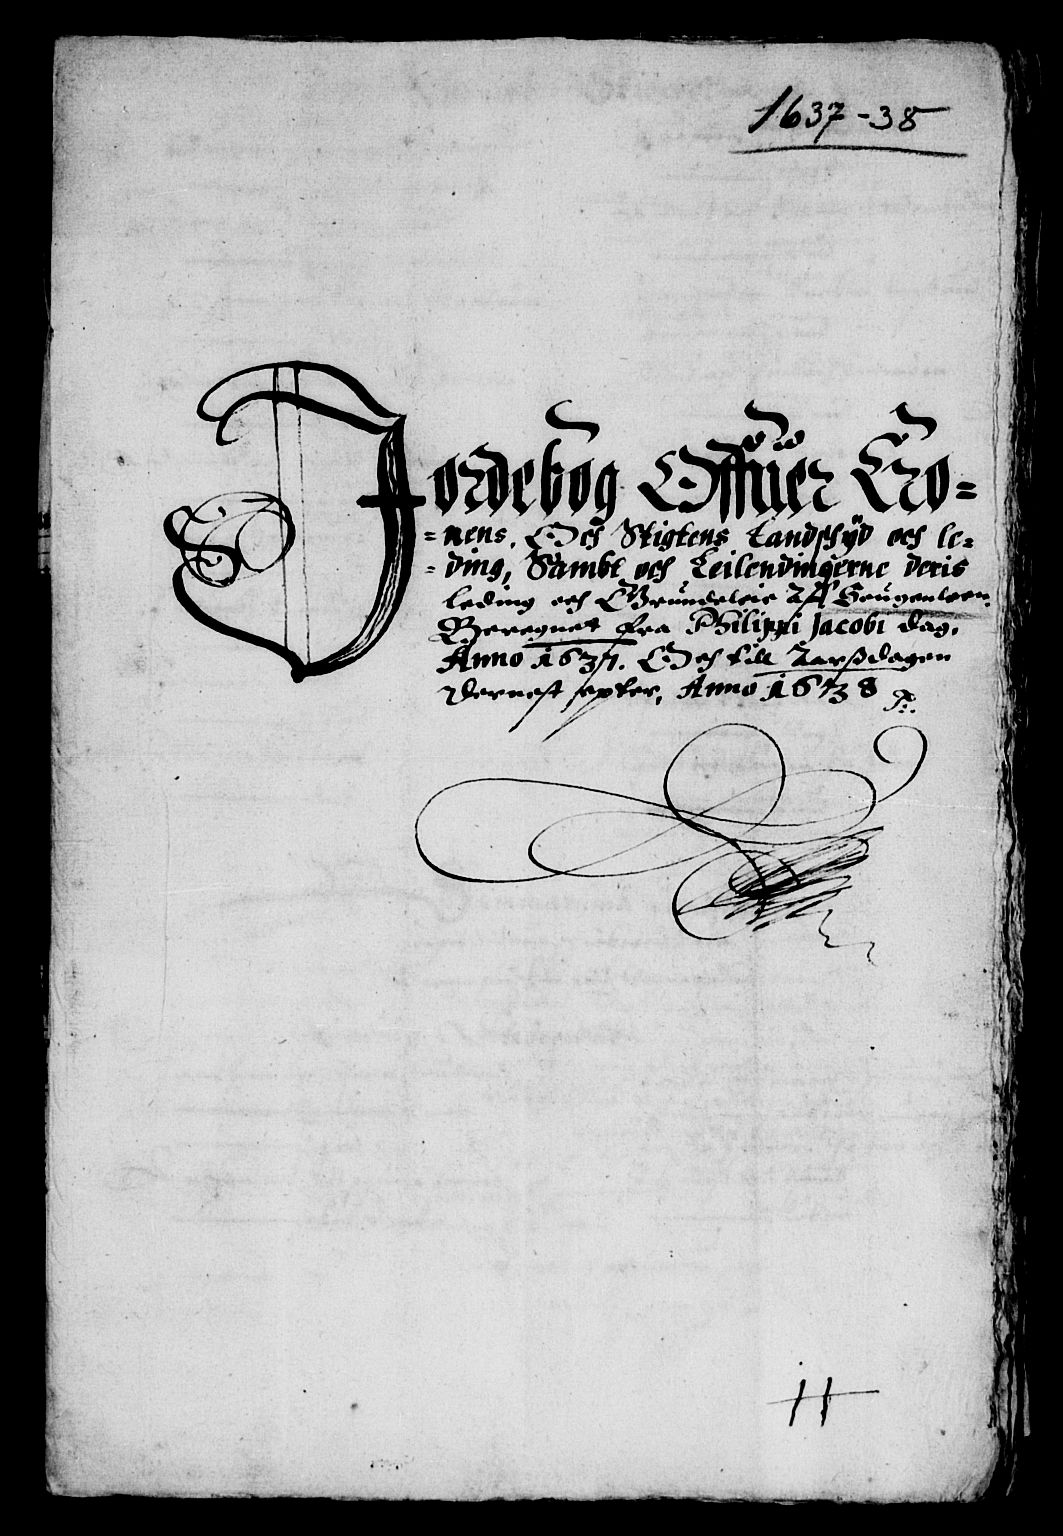 1637-38
Jordebog Offuer Cro=
=nens, Och Stigtens Landschÿd och le=
=ding, Sambt och Leilendingerne deris
leding och Grundeleie Aff Haugenleen.
Beregnet fra Philippi Jacobi dag,
Anno 1637. Och till Aarßdagen
dernest epter, Anno 1638
H